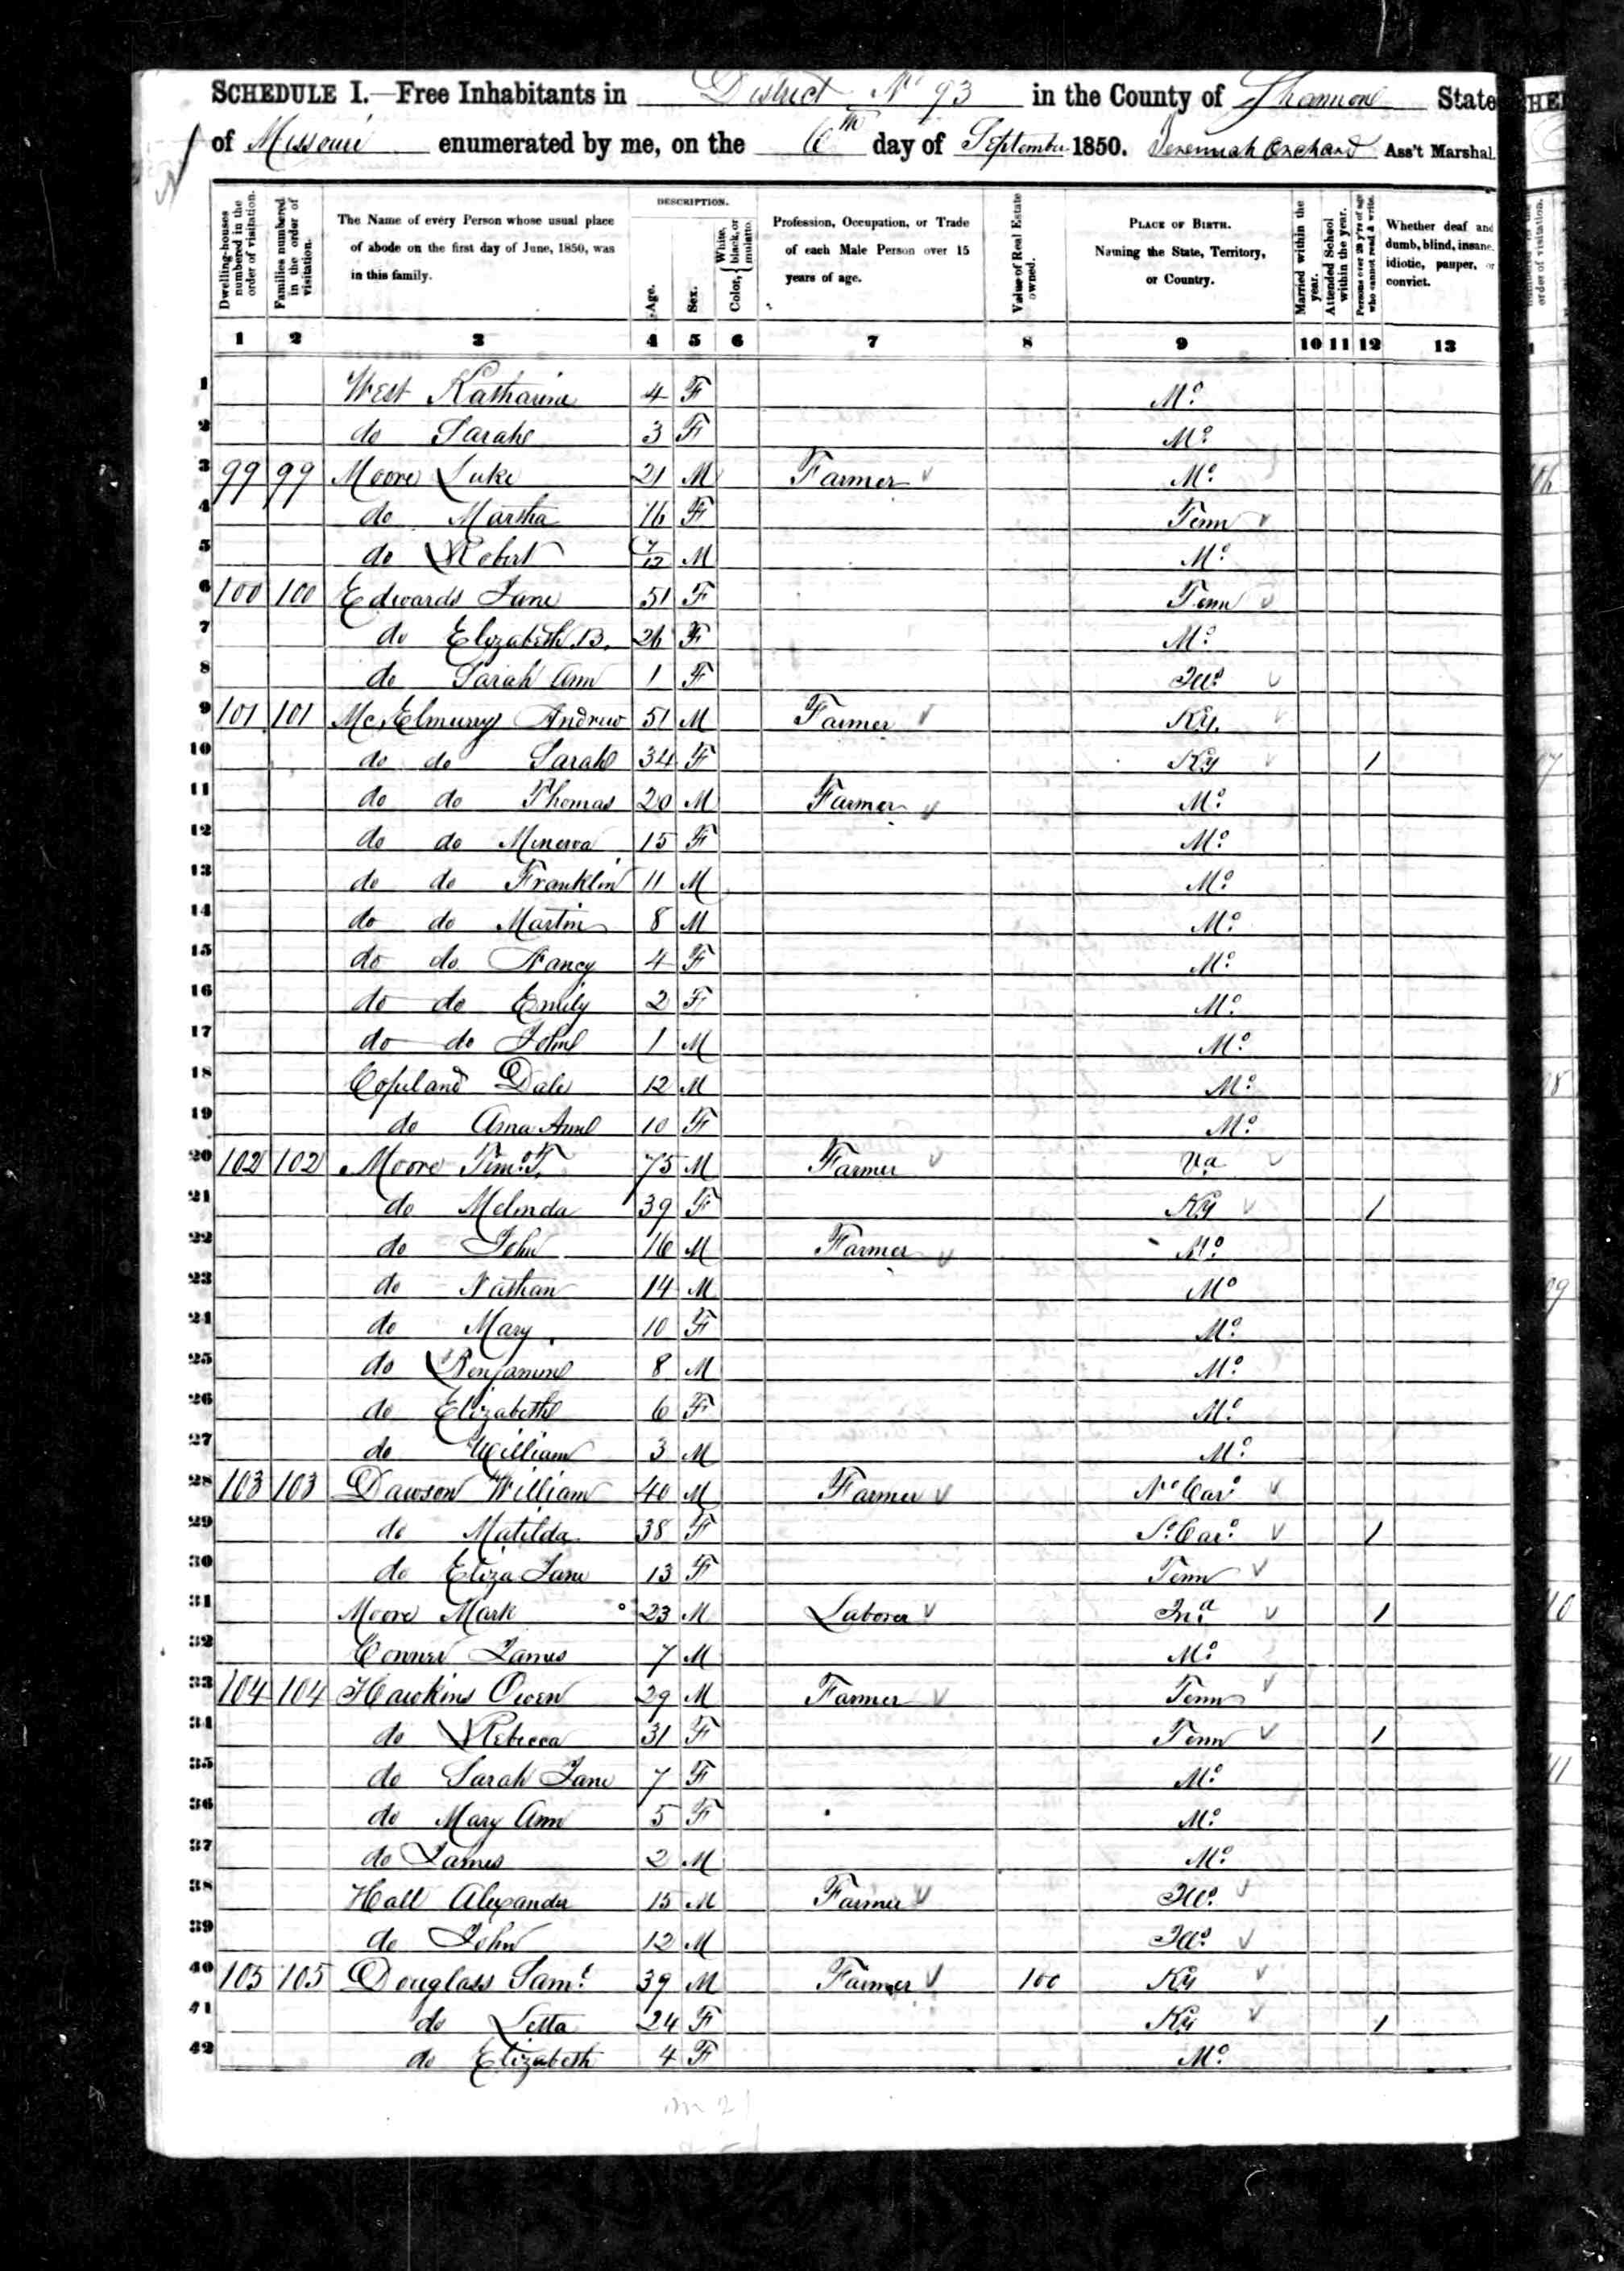 SCHEDULE I.—Free Inhabitants in District No 93 in the County of Shannon State
of Missouri enumerated by me, on the 6th day of September 1850. Jeremiah Orchard Ass't Marshal.
Dwelling-houses numbered in the order of visitation.
Families numbered in the order of visitation.
The Name of every Person whose usual place of abode on the first day of June, 1850, was in this family.
DESCRIPTION.
Age.
Sex.
Color, { White, black, or mulatto.
Profession, Occupation, or Trade of each Male Person over 15 years of age.
Value of Real Estate owned.
PLACE OF BIRTH. Naming the State, Territory, or Country.
Married within the year.
Attended School within the year.
Persons over 20 y'rs of age who cannot read & write.
Whether deaf and dumb, blind, insane, idiotic, pauper, or convict.
1 2 3 4 5 6 7 8 9 10 11 12 13
1 West Katharine 4 F Mo.
2 do Sarah 3 F Mo.
3 99 99 Moore Luke 21 M Farmer Mo.
4 do Martha 16 F Tenn
5 do Robert 7/12 M Mo.
6 100 100 Edwards Jane 51 F Tenn
7 do Elizabeth B. 26 F Mo.
8 do Sarah Ann 1 F Ills
9 101 101 McElmurry Andrew 51 M Farmer Ky.
10 do do Sarah 34 F Ky 1
11 do do Thomas 20 M Farmer Mo.
12 do do Minerva 15 F Mo.
13 do do Franklin 11 M Mo.
14 do do Martin 8 M Mo.
15 do do Nancy 4 F Mo.
16 do do Emily 2 F Mo.
17 do do John 1 M Mo.
18 Copeland Dale 12 M Mo.
19 do Anna 10 F Mo.
20 102 102 Moore Tim. T. 75 M Farmer Va
21 do Melinda 39 F Ky 1
22 do John 16 M Farmer Mo.
23 do Nathan 14 M Mo
24 do Mary 10 F Mo.
25 do Benjamin 8 M Mo.
26 do Elizabeth 6 F Mo.
27 do William 3 M Mo.
28 103 103 Dawson William 40 M Farmer No Car.
29 do Matilda 38 F So. Car. 1
30 do Eliza Jane 13 F Tenn
31 Moore Mark 23 M Laborer Ina 1
32 Conner James 7 M Mo.
33 104 104 Hawkins Owen 29 M Farmer Tenn
34 do Rebecca 31 F Tenn 1
35 do Sarah Jane 7 F Mo.
36 do Mary Ann 5 F Mo.
37 do James 2 M Mo.
38 Hall Alexander 15 M Farmer Ills.
39 do John 12 M Ills
40 105 105 Douglass Saml. 39 M Farmer 100 Ky
41 do Letta 24 F Ky 1
42 do Elizabeth 4 F Mo.